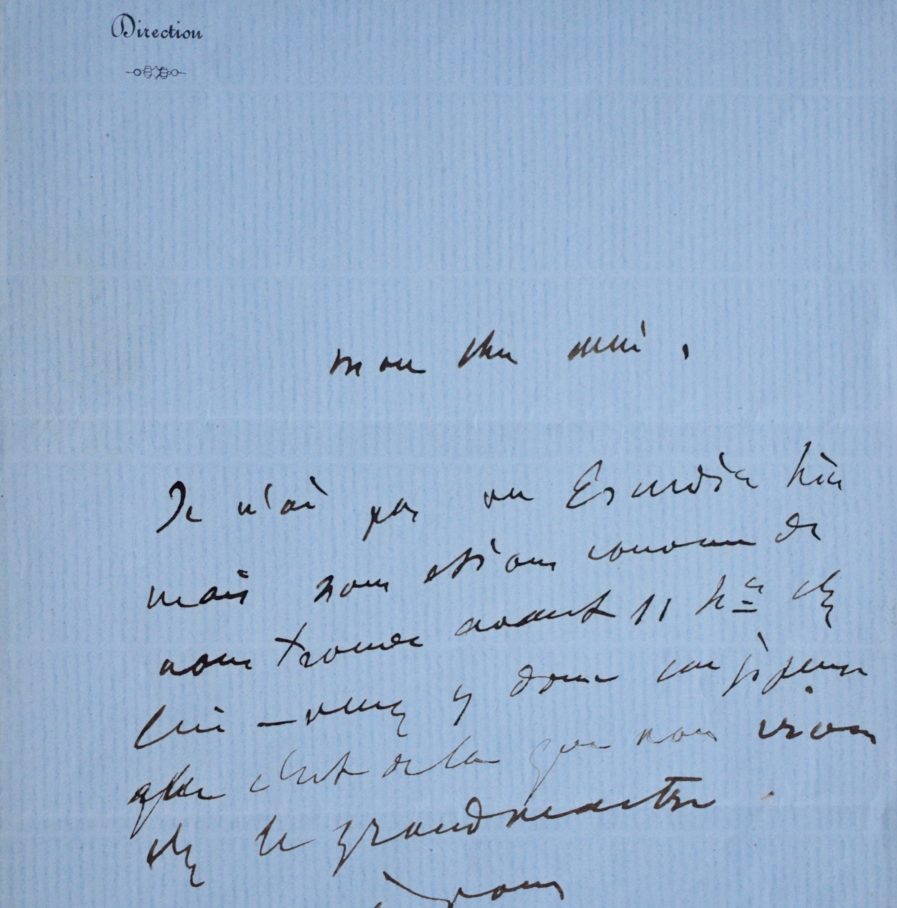 Direction
mon cher ami,
Je n'ai pas vu Escudier hier
mais nous etions convenu de
nous trouver avant 11 hres chez
lui – venez y donc car je pense
que c'est de la que nous irons
chez le grand maitre.
à vous